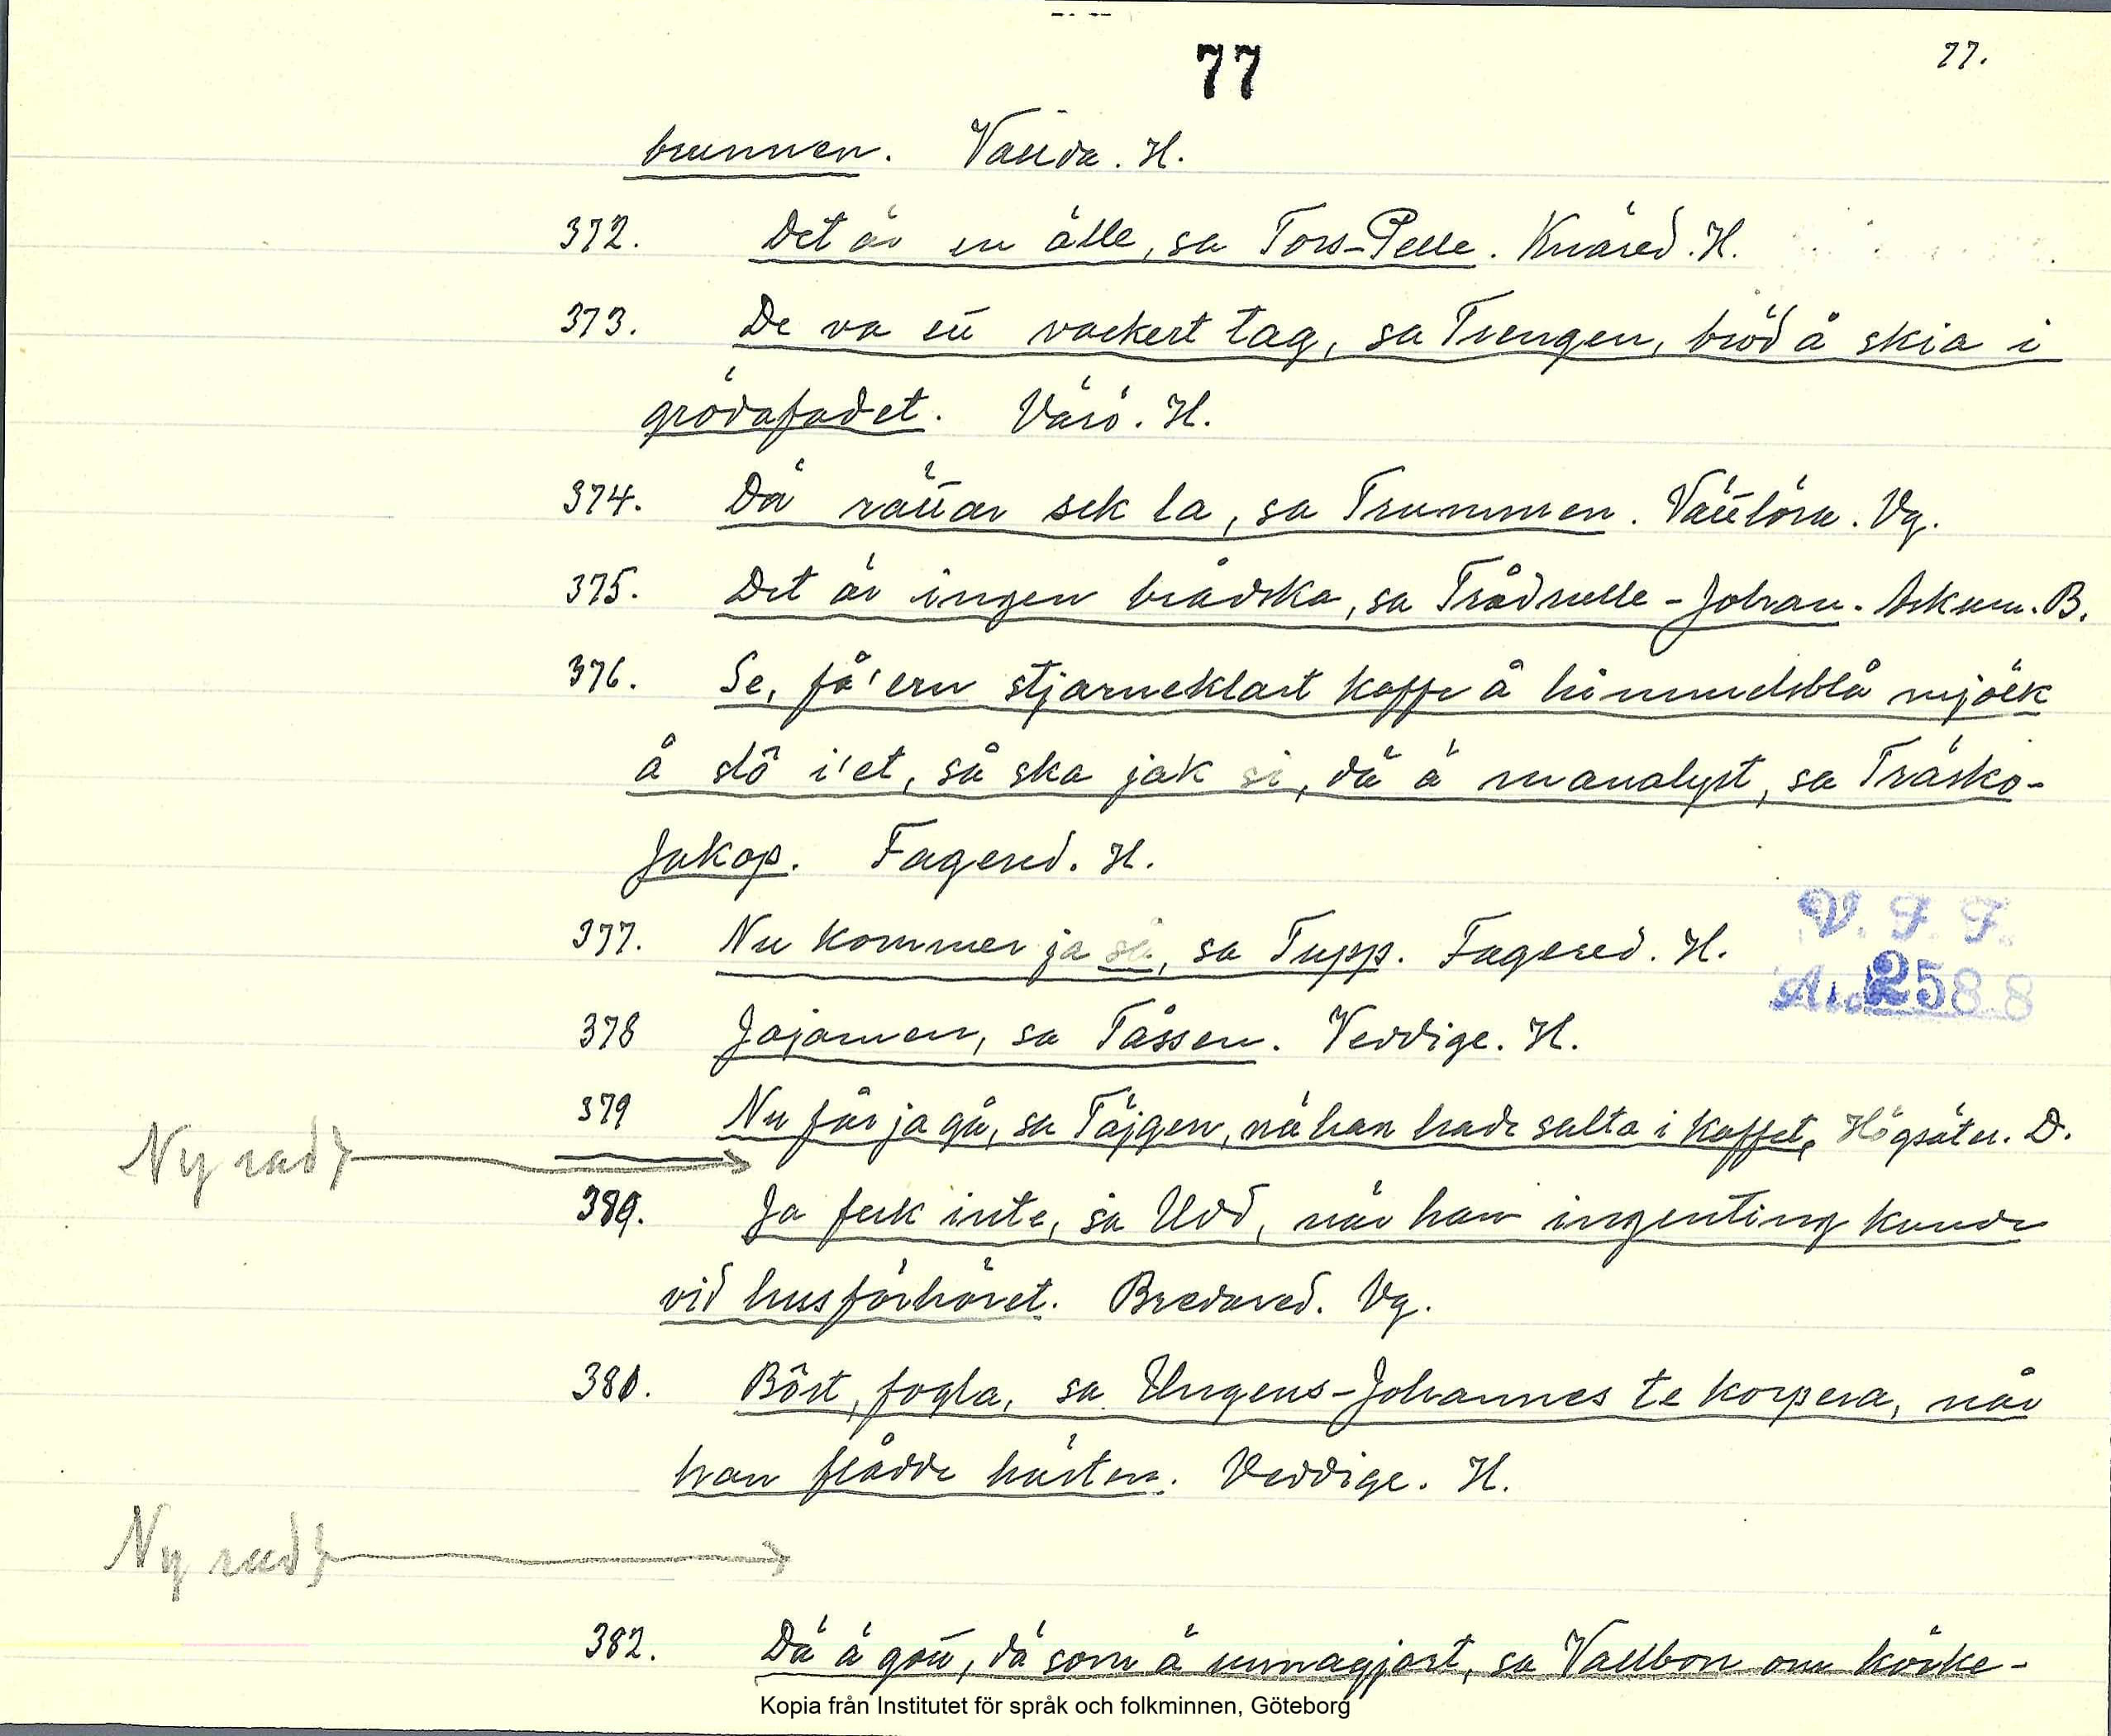 77
77.
brunnen. Valida. H.
372. Det är en älle, sa Tors-Pelle. Knäred. H.
373. De va ett vackert tag, sa Trengen, bröd å skia i
grödafadet. Värö. H.
374. Dä rättar sek la, sa Trummen. Vättlösa. Vg.
375. Det är ingen brådska, sa Trådrulle-Johan. Askum. B.
376. Se, få'ern stjarneklart kaffe å himmelsblå mjölk
å slô i'et, så ska jak si, dä ä manalyst, sa Träsko-
Jakop. Fagered. H.
377. Nu kommer ja så, sa Tupp. Fagered. H.
V. F. F.
Acc 2588
378 Jajamen, sa Tåssen. Veddige. H.
379 Nu får ja gå, sa Täjgen, nä han hade salta i kaffet. Högsäter. D.
Ny rad
380. Ja fick inte, sa Udd, när han ingenting kunde
vid husförhöret. Bredared. Vg.
381. Bôrt, fogla, sa Ungens-Johannes te korpera, når
han flådde hästen. Veddige. H.
Ny rad
382. Dä ä gott, dä som ä unnagjort, sa Vallbon om körke-
Kopia från Institutet för språk och folkminnen, Göteborg